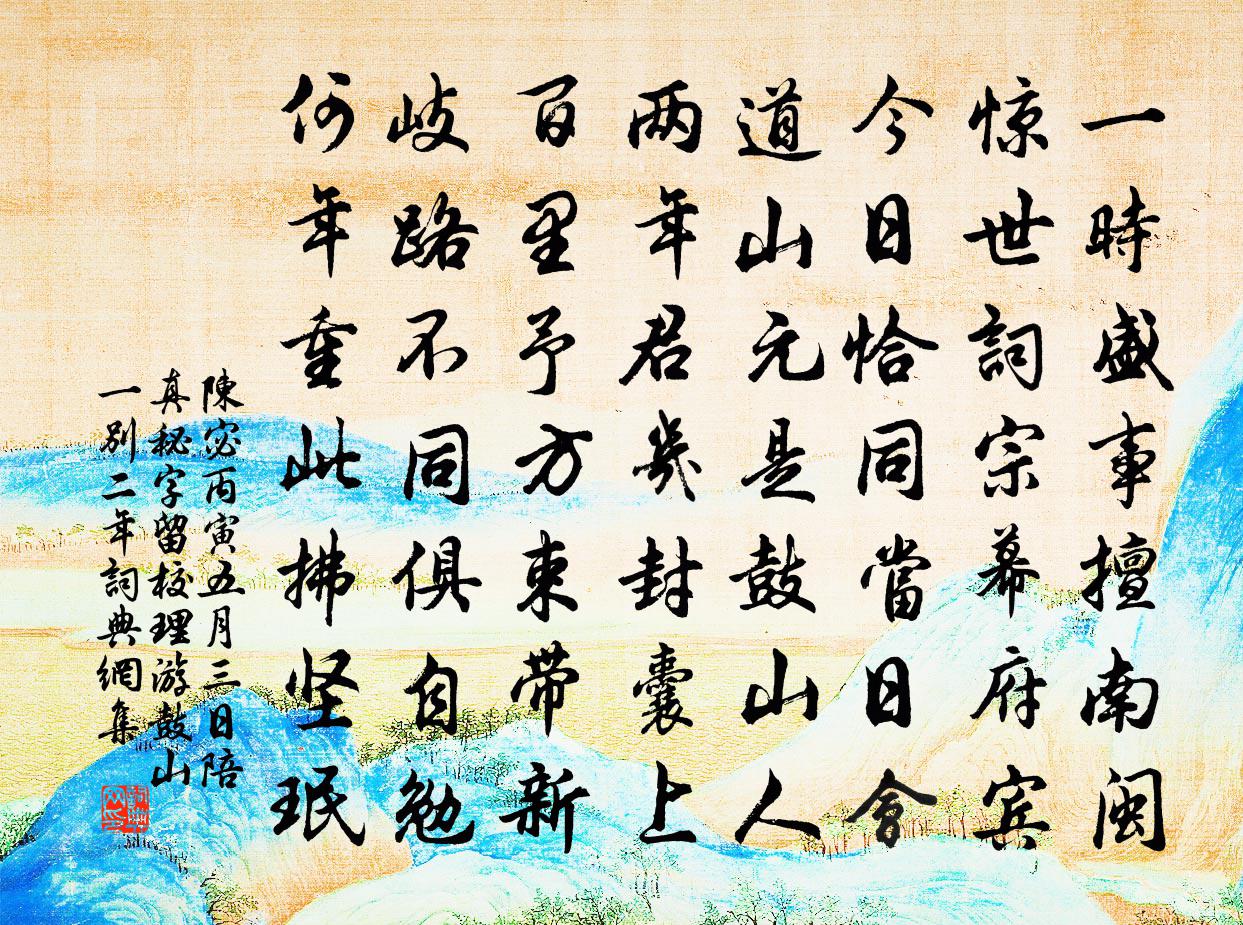 一時盛事擅南闽
惊世詞宗幕府宾
今日恰同當日會
道山元是鼓山人
两年君幾封囊上
百里予方束带新
岐路不同俱自勉
何年重此拂坚珉
陳宓丙寅五月三日陪
真秘字留校理游鼓山
一别二年詞典網集